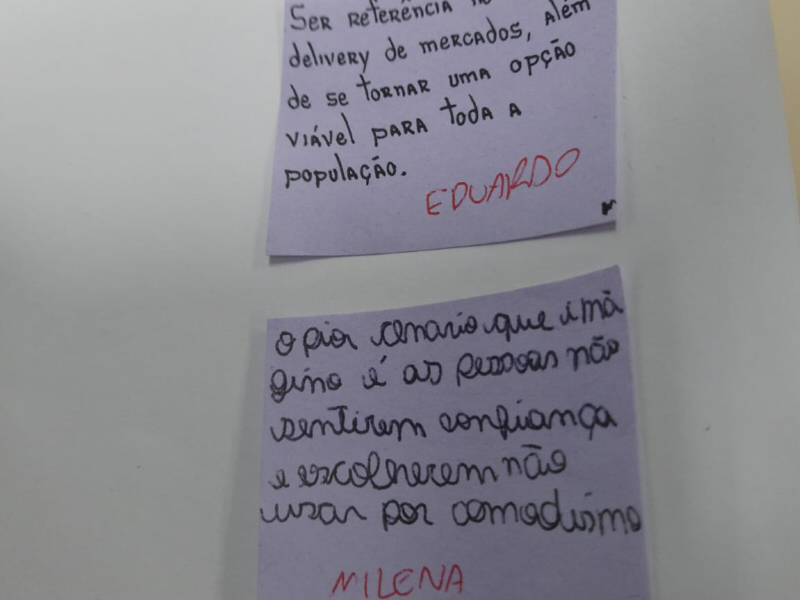 SER REFERÊNCIA NO
delivery de mercados, além
de se TORNAR UMA OPÇÃO
viável PARA toda A
população.
EDUARDO
o pior cenario que ima
gino é as pessoas não
sentirem confiança
e escolherem não
usar por comodismo
MILENA